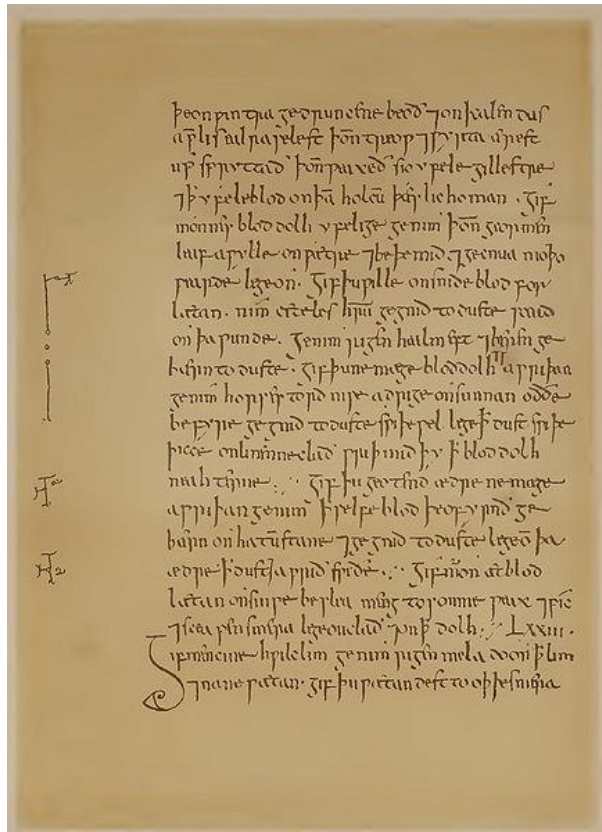 þe on wintra gedruncene beoð ⁊ on
up spryttað þoñ weaxeð sio yfele gillestre
⁊ þ yfele blod on þā holcū þæs lichoman · gif
mon blod dolh yfelige genim þoñ geormen
leaf awylle on wætre ⁊ beþe mid ⁊ gecnua nioþo
weardē lege on · Gif þu wille on snide blod for
lætan · nim gegnid to duste scead
on þa wunde · Genim rygen healm eft ⁊ beren ge
bærn to duste · gif þu ne mæge blod dolh awriþan
genim horses tord niwe adrige on sunnan oððe
be fyre gegnid to duste swiþe wel lege þ dust swiþe
þicce on linenne clað wriþ mid þy þ blod dolh
neahterne :· Gif þu geotend ædre ne mæge
awriþan genim þ selfe blod þe of yrnð ge
bærn on hatum stane ⁊ gegnid to duste lege on þa
ædre þ dust ⁊ awrið swiðe :· Gif mon æt blod
lætan on sinwe beslea meng tosomne weax ⁊ pic
⁊ sceapen smera lege on clað ⁊ on þ dolh :· LXXIII ·
Gif men cine hwilc lim genim rygen mela do on þ lim
to oþþe smera